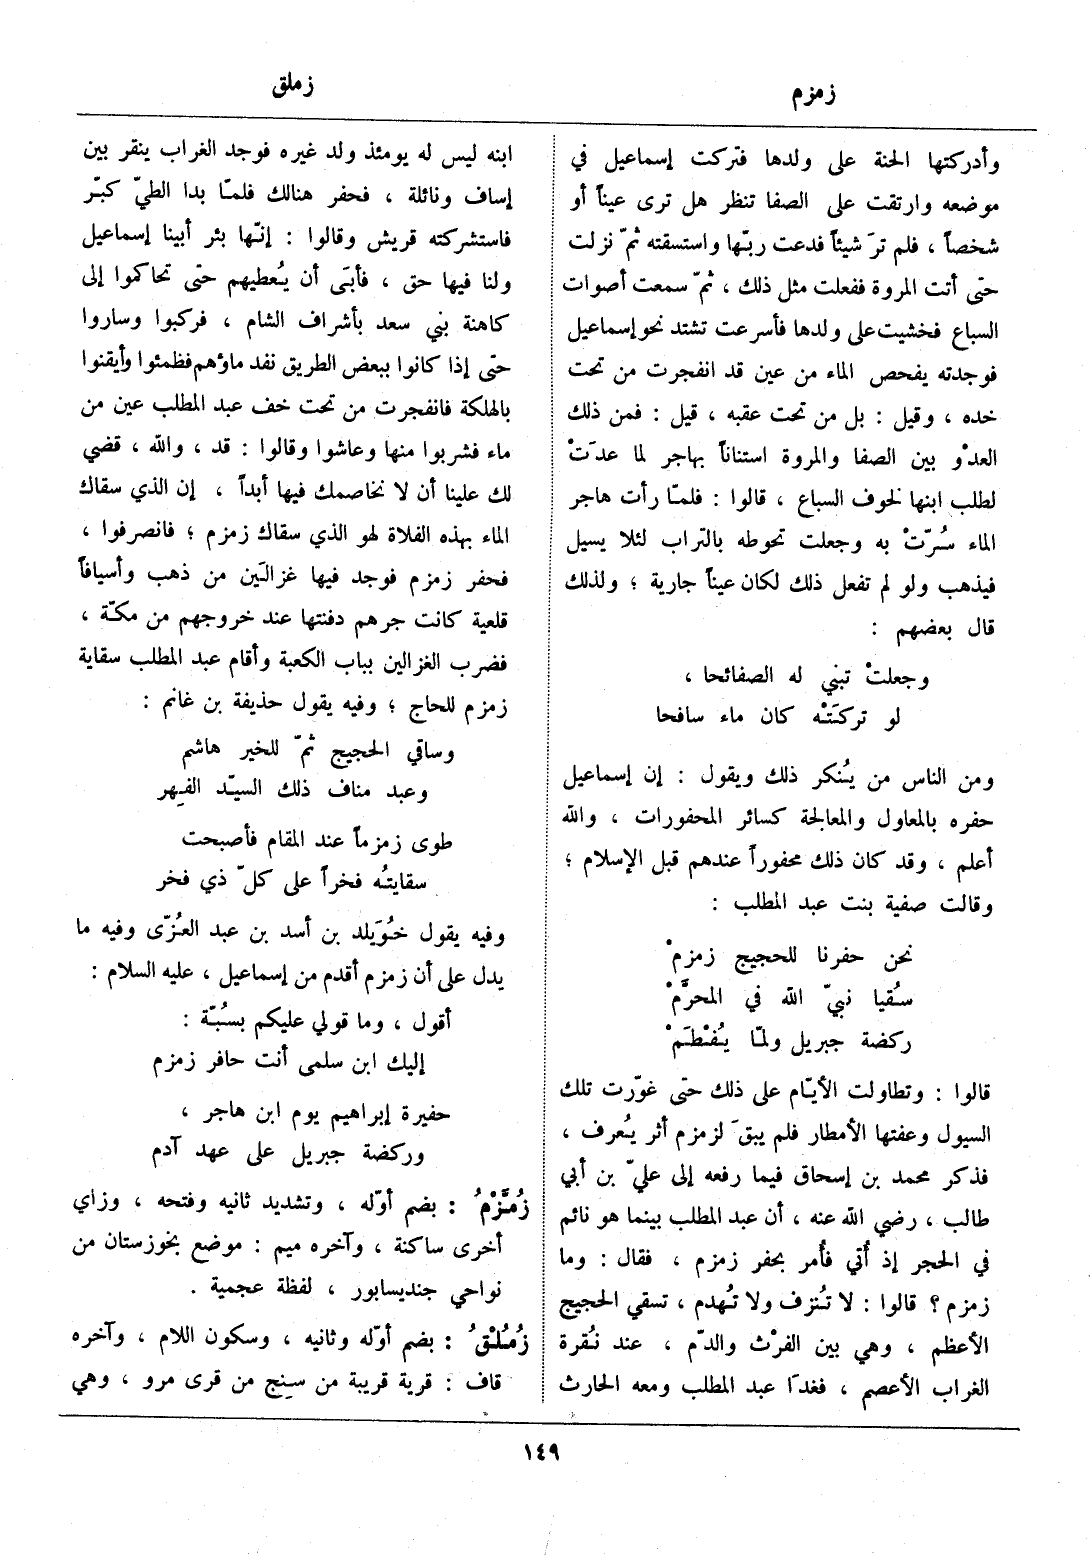 زمزم
زملق
وأدركتها الحنة على ولدها فتركت إسماعيل في
موضعه وارتقت على الصفا تنظر هل ترى عيناً أو
شخصاً ، فلم ترَ شيئاً فدعت ربّها واستسقته ثمّ نزلت
حتّى أتت المروة ففعلت مثل ذلك ، ثمّ سمعت أصوات
السباع فخشيت على ولدها فأسرعت تشتد نحو إسماعيل
فوجدته يفحص الماء من عين قد انفجرت من تحت
خده ، وقيل : بل من تحت عقبه ، قيل : فمن ذلك
العدْو بين الصفا والمروة استناناً بهاجر لما عدَتْ
لطلب ابنها لخوف السباع ، قالوا : فلمّا رأت هاجر
الماء سُرّتْ به وجعلت تحوطه بالتراب لئلا يسيل
فيذهب ولو لم تفعل ذلك لكان عيناً جارية ؛ ولذلك
قال بعضهم :
وجعلتْ تبني له الصفائحا ،
لو تركَتْه كان ماء سافحا
ومن الناس من يُنكر ذلك ويقول : إن إسماعيل
حفره بالمعاول والمعالجة كسائر المحفورات ، والله
أعلم ، وقد كان ذلك محفوراً عندهم قبل الإسلام ؛
وقالت صفية بنت عبد المطلب :
نحن حفرنا للحجيج زمزمْ
سُقيا نبيّ الله في المحرَّمْ
ركضة جبريل ولمّا يُفْطَمْ
قالوا : وتطاولت الأيّام على ذلك حتّى غوّرت تلك
السيول وعفتها الأمطار فلم يبقَ لزمزم أثر يُعرف ،
فذكر محمد بن إسحاق فيما رفعه إلى عليّ بن أبي
طالب ، رضي الله عنه ، أن عبد المطلب بينما هو نائم
في الحجر إذ أُتي فأُمر بحفر زمزم ، فقال : وما
زمزم ؟ قالوا : لا تُنزف ولا تُهدم ، تسقي الحجيج
الأعظم ، وهي بين الفرْث والدّم ، عند نُقرة
الغراب الأعصم ، فغدَا عبد المطلب ومعه الحارث
ابنه ليس له يومئذ ولد غيره فوجد الغراب ينقر بين
إساف ونائلة ، فحفر هنالك فلمّا بدا الطيّ كبّر
فاستشركته قريش وقالوا : إنّها بئر أبينا إسماعيل
ولنا فيها حق ، فأبَى أن يُعطيهم حتّى تحاكموا إلى
كاهنة بني سعد بأشراف الشام ، فركبوا وساروا
حتّى إذا كانوا ببعض الطريق نفد ماؤهم فظمئوا وأيقنوا
بالهلكة فانفجرت من تحت خف عبد المطلب عين من
ماء فشربوا منها وعاشوا وقالوا : قد ، والله ، قضي
لك علينا أن لا نخاصمك فيها أبداً ، إن الذي سقاك
الماء بهذه الفلاة لهو الذي سقاك زمزم ؛ فانصرفوا ،
فحفر زمزم فوجد فيها غزالَين من ذهب وأسيافاً
قلعية كانت جرهم دفنتها عند خروجهم من مكّة ،
فضرب الغزالين بباب الكعبة وأقام عبد المطلب سقاية
زمزم للحاج ؛ وفيه يقول حذيفة بن غانم :
وساقي الحجيج ثمّ للخير هاشم
وعبد مناف ذلك السيّد الفِهر
طوى زمزماً عند المقام فأصبحت
سقايتُه فخراً على كلّ ذي فخر
وفيه يقول خُوَيلد بن أسد بن عبد العُزّى وفيه ما
يدل على أن زمزم أقدم من إسماعيل ، عليه السلام :
أقول ، وما قولي عليكم بسُبّة :
إليك ابن سلمى أنت حافر زمزم
حفيرة إبراهيم يوم ابن هاجر ،
وركضة جبريل على عهد آدم
زُمَّزْمُ : بضم أوّله ، وتشديد ثانيه وفتحه ، وزاي
أخرى ساكنة ، وآخره ميم : موضع بخوزستان من
نواحي جنديسابور ، لفظة عجمية .
زُمُلْقُ : بضم أوّله وثانيه ، وسكون اللام ، وآخره
قاف : قرية قريبة من سنج من قرى مرو ، وهي
١٤٩